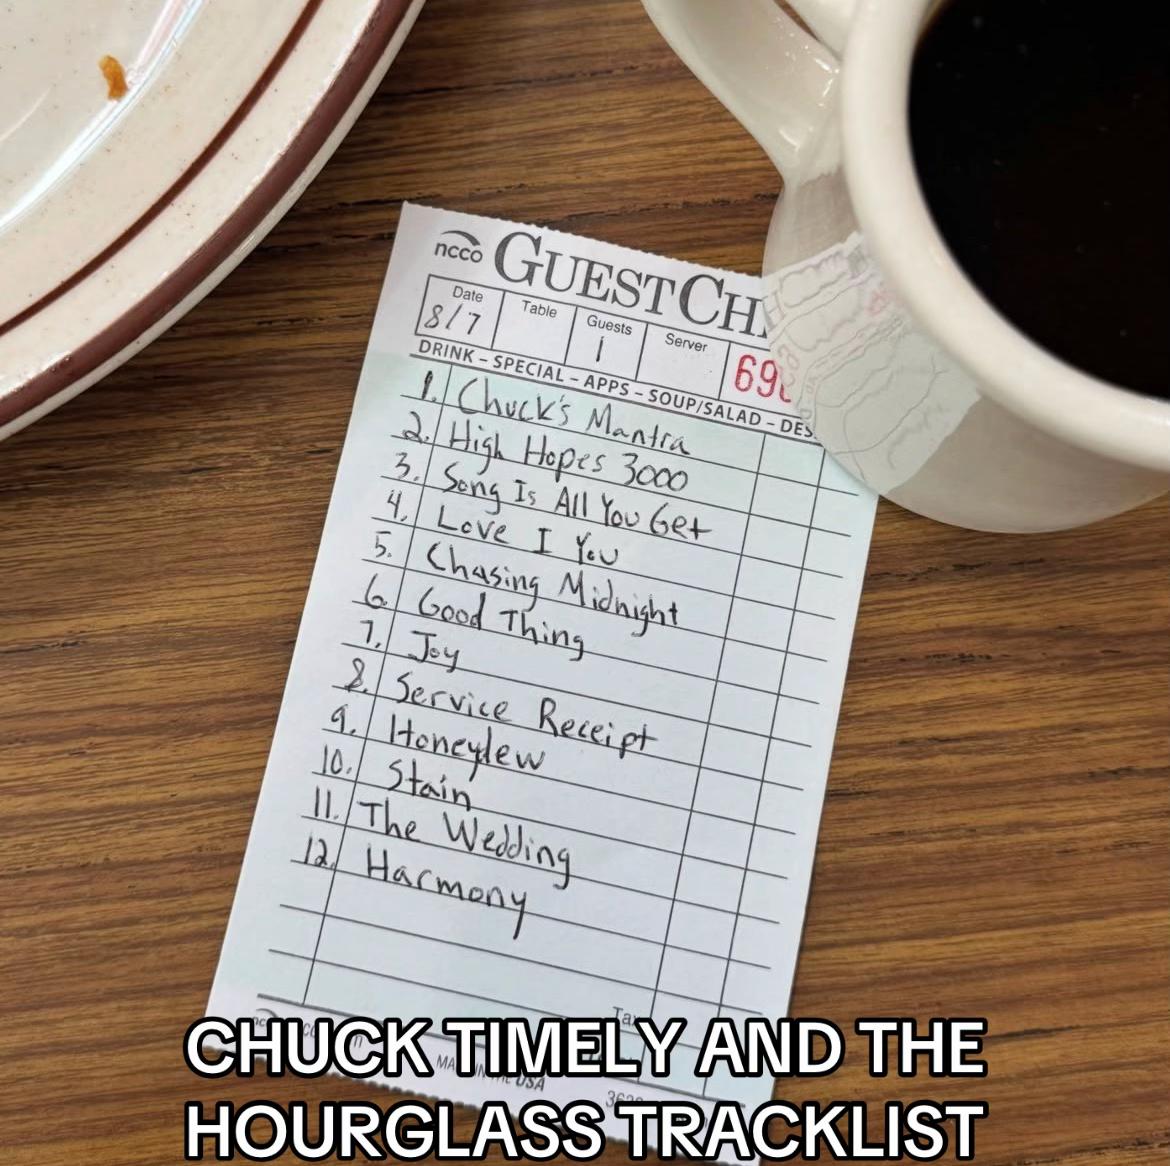 ncco GUESTCH
Date Table Guests Server
8/7 1 69
DRINK – SPECIAL – APPS – SOUP/SALAD – DES
1. Chuck's Mantra
2. High Hopes 3000
3. Song Is All You Get
4. Love I You
5. Chasing Midnight
6. Good Thing
7. Joy
8. Service Receipt
9. Honeylew
10. Stain
11. The Wedding
12. Harmony
Tax
USA
CHUCK TIMELY AND THE
HOURGLASS TRACKLIST